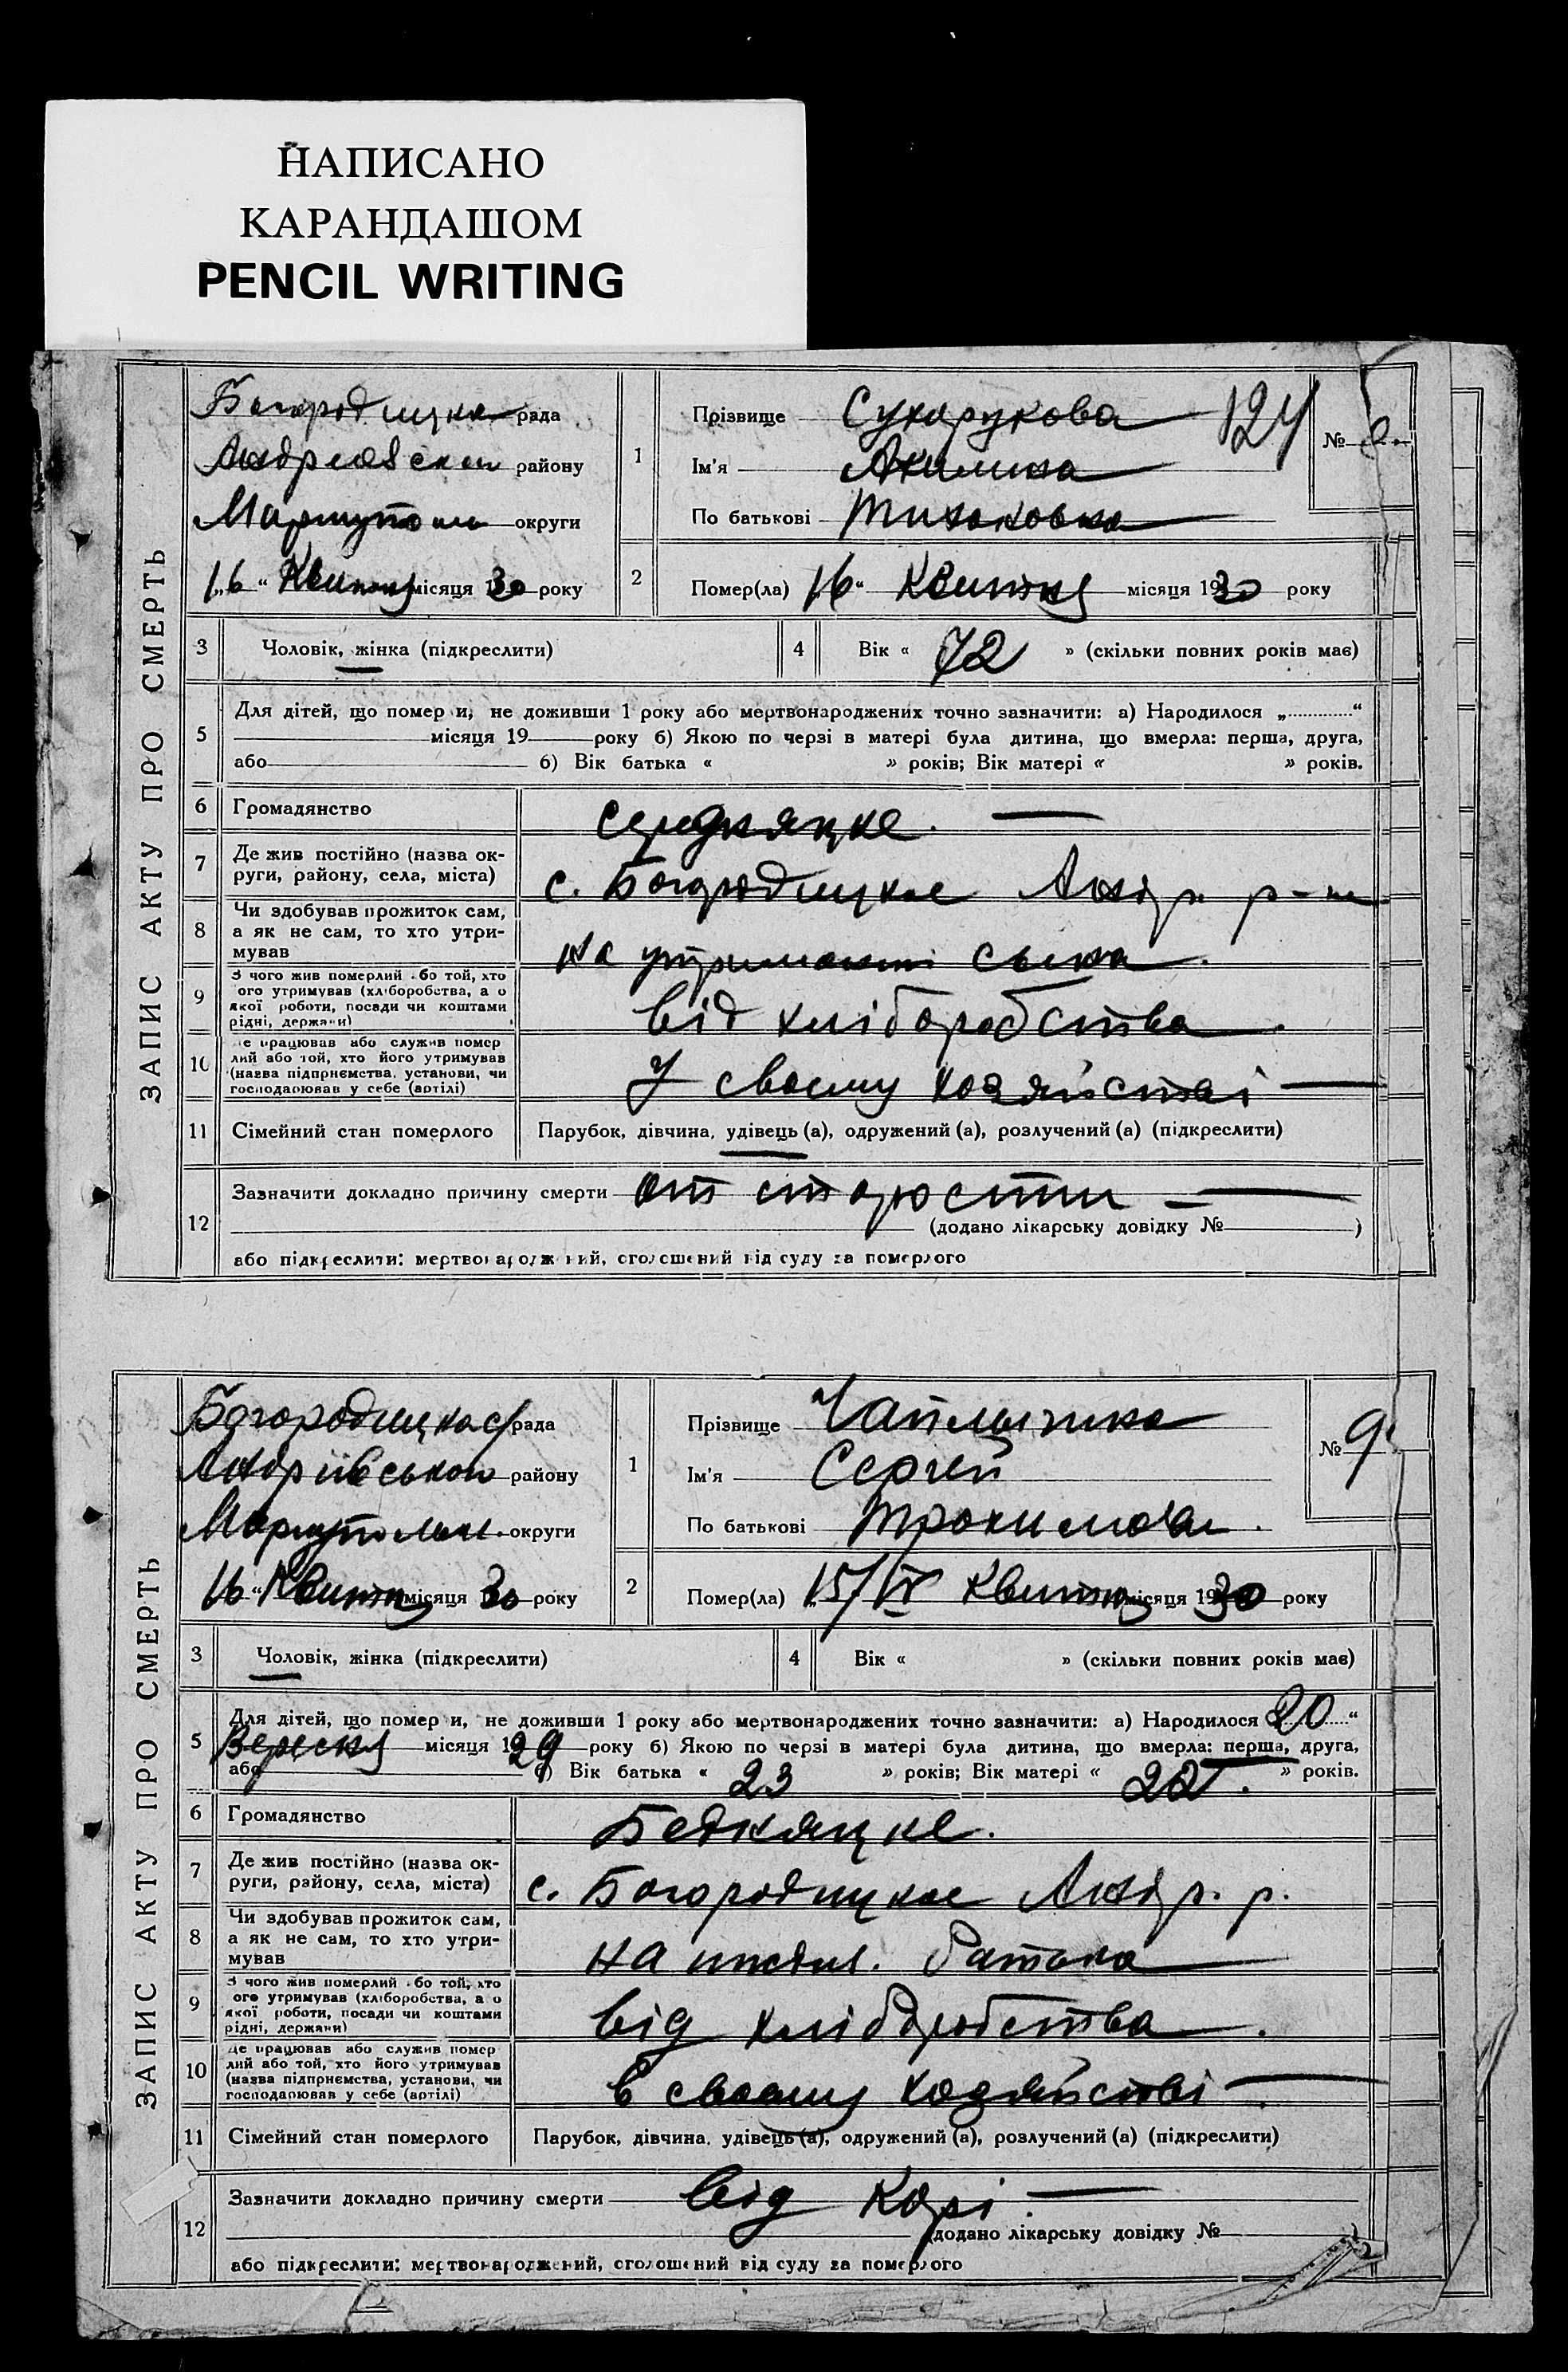 НАПИСАНО
КАРАНДАШОМ
PENCIL WRITING
ЗАПИС АКТУ ПРО СМЕРТЬ
Богородицка рада
району
округи
16 " Квитня місяця 1930 року
1
Прізвище Сухорукова
124
№
Ім'я Акилина
По батькові
2
Помер(ла) 16 " Квитня місяця 1930 року
3 Чоловік, жінка (підкреслити)
4 Вік « 72 » (скільки повних років має)
5
Для дітей, що помер и, не доживши 1 року або мертвонароджених точно зазначити: а) Народилося „ “
місяця 19 року б) Якою по черзі в матері була дитина, що вмерла: перша, друга,
або б) Вік батька « » років; Вік матері « » років.
6 Громадянство середняцке.
7 Де жив постійно (назва ок-
руги, району, села, міста)
с. Богородицкое Андр. р-н
8 Чи здобував прожиток сам,
а як не сам, то хто утри-
мував
на утриманні сына.
9 З чого жив померлий або той, хто
ого утримував (хліборобства, а о
якої роботи, посади чи коштами
рідні, держави)
від хліборобства.
10 е працював або служив помер
лий або той, хто його утримував
(назва підприємства, установи, чи
господарював у себе (артілі)
У своему хозяйстві
11 Сімейний стан померлого Парубок, дівчина, удівець (а), одружений (а), розлучений (а) (підкреслити)
12
Зазначити докладно причину смерти от старости
(додано лікарську довідку № )
або підкреслити: мертвонароджений, оголошений від суду за померлого
ЗАПИС АКТУ ПРО СМЕРТЬ
Богородицкас/рада
Андріївського району
округи
16 " Квитня місяця 30 року
1
Прізвище
№ 9
Ім'я Сергей
По батькові
2
Помер(ла) 15/IV Квитня місяця 1930 року
3 Чоловік, жінка (підкреслити)
4 Вік « » (скільки повних років має)
5
Для дітей, що помер и, не доживши 1 року або мертвонароджених точно зазначити: а) Народилося „ 20 “
Вересня місяця 1929 року б) Якою по черзі в матері була дитина, що вмерла: перша, друга,
або б) Вік батька « 23 » років; Вік матері « » років.
6 Громадянство Бедняцке.
7 Де жив постійно (назва ок-
руги, району, села, міста)
с. Богородицкое Андр. р.
8 Чи здобував прожиток сам,
а як не сам, то хто утри-
мував
на батька
9 З чого жив померлий або той, хто
ого утримував (хліборобства, а о
якої роботи, посади чи коштами
рідні, держави)
від хліборобства.
10 Де працював або служив помер
лий або той, хто його утримував
(назва підприємства, установи, чи
господарював у себе (артілі)
в своему хозяйстві
11 Сімейний стан померлого Парубок, дівчина, удівець (а), одружений (а), розлучений (а) (підкреслити)
12
Зазначити докладно причину смерти Від Корі
(додано лікарську довідку № )
або підкреслити: мертвонароджений, оголошений від суду за померлого